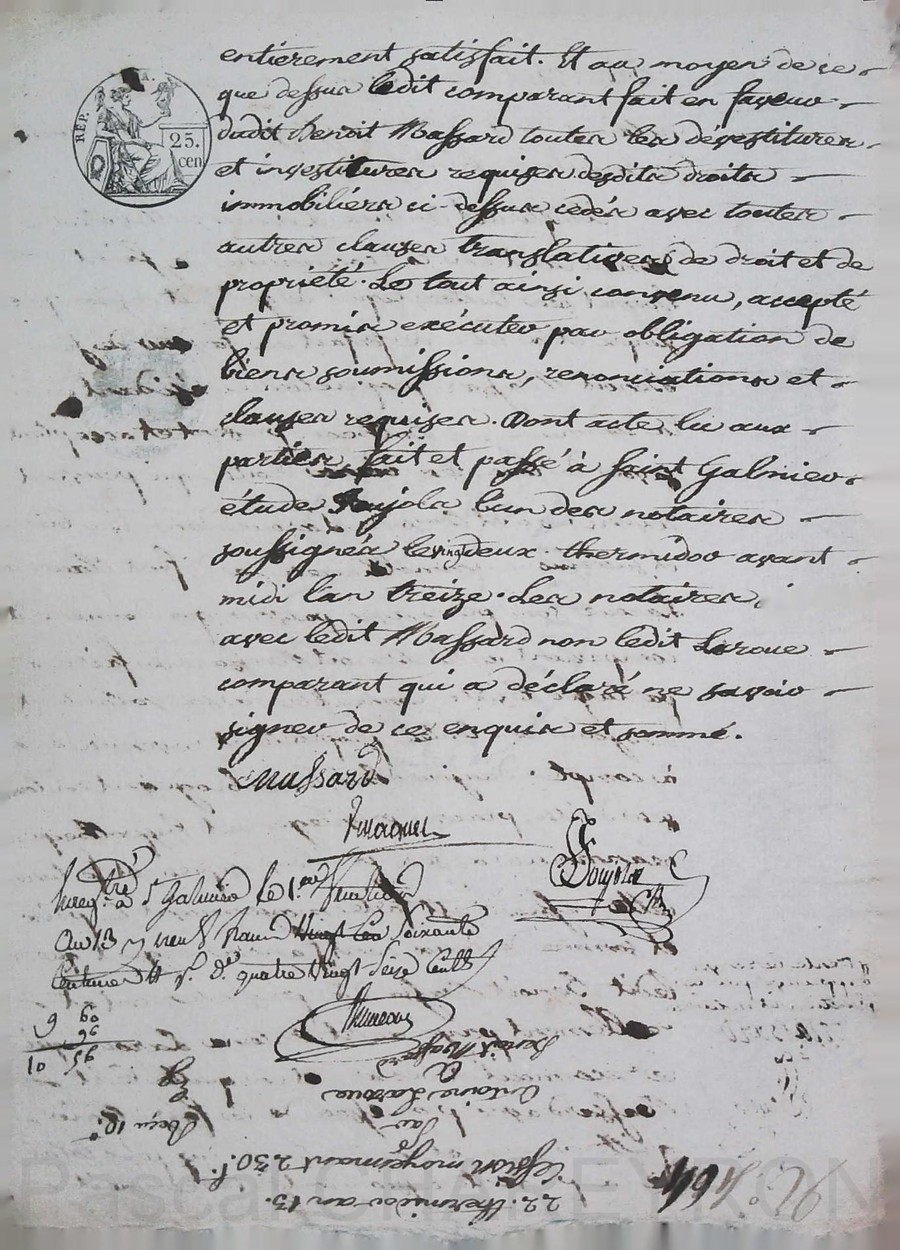 REP. 
25.
cen
entierement satisfait. Et au moyen de ce
que dessus ledit comparant fait en faveur
dudit Benoit Massard toutes les dévestitures
et investitures requises desdits droits
immobiliers ci-dessus cédés avec toutes
autres clauses translatives de droit et de
propriété. Le tout ainsi convenu, accepté
et promis exécuter par obligation de
biens soumissions, renonciations et
clauses requises. Dont acte lu aux
parties fait et passé à Saint Galmier
étude Soujols l'un des notaires
soussignés le vingt deux thermidor avant
midi l'an treize. Les notaires,
avec ledit Massard non ledit Laroue
comparant qui a déclaré ne savoir
signer de ce enquis et sommé.
Massard
Soujols
Enregtré à St Galmier le 1er fructidor
an 13 neuf francs soixante
centimes quatre vingt seize
9 60
96
10 56
Benoit Massard
A
Antoine Laroue
Par
Cession moyennant 230 f.
22 thermidor an 13.
N° 164